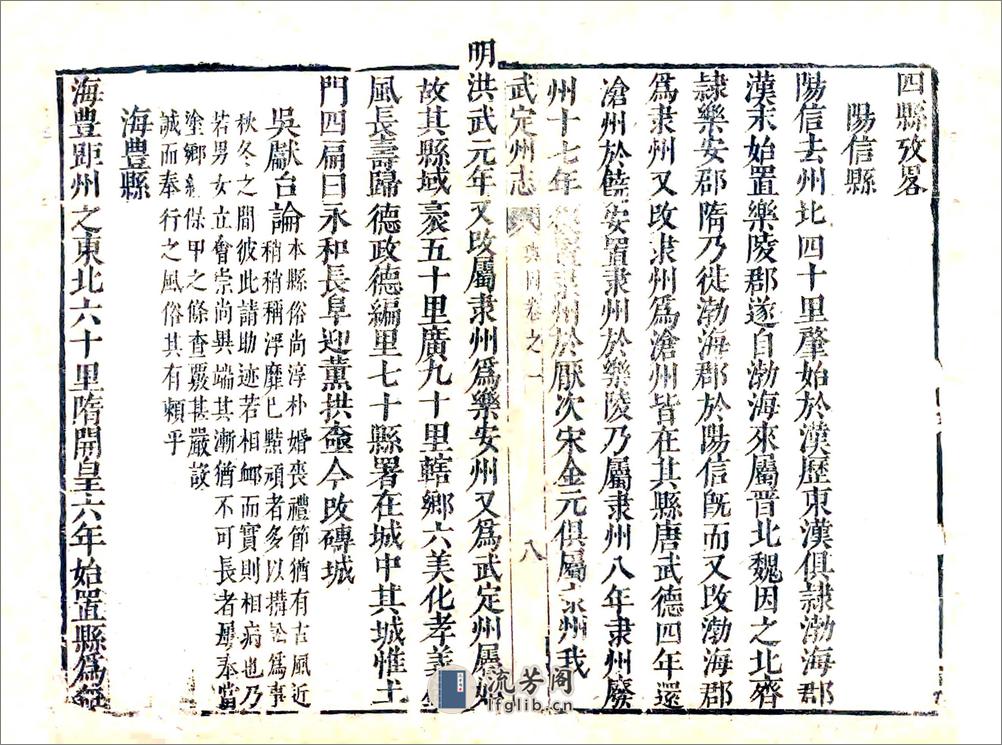 四縣攷畧
陽信縣
陽信去州北四十里肇始於漢歷東漢俱隷渤海郡
漢末始置樂陵郡遂自渤海來屬晉北魏因之北齊
隷樂安郡隋乃徙渤海郡於陽信旣而又改渤海郡
爲隶州又改隶州爲滄州皆在其縣唐武德四年還
滄州於饒安置隶州於樂陵乃屬隶州八年隶州廢
州十七年復置隶州於厭次宋金元俱屬隶州我
武定州志 輿圖卷之一 八
明洪武元年又改屬隶州爲樂安州又爲武定州屬如
故其縣域袤五十里廣九十里轄鄉六美化孝義
風長壽歸德政德編里七十縣署在城中其城惟土
門四扁曰永和長阜迎薰拱極今改磚城
吳獻台論本縣俗尚淳朴婚喪禮節猶有古風近
稍稍稱浮靡已黠頑者多以搆訟爲事
秋冬之間彼此請助迹若相鄉而實則相病也乃
若男女立會崇尚異端其漸猶不可長者屢奉當
塗鄉約保甲之條查覈甚嚴
誠而奉行之風俗其有頼乎
海豊縣
海豊距州之東北六十里隋開皇六年始置縣爲